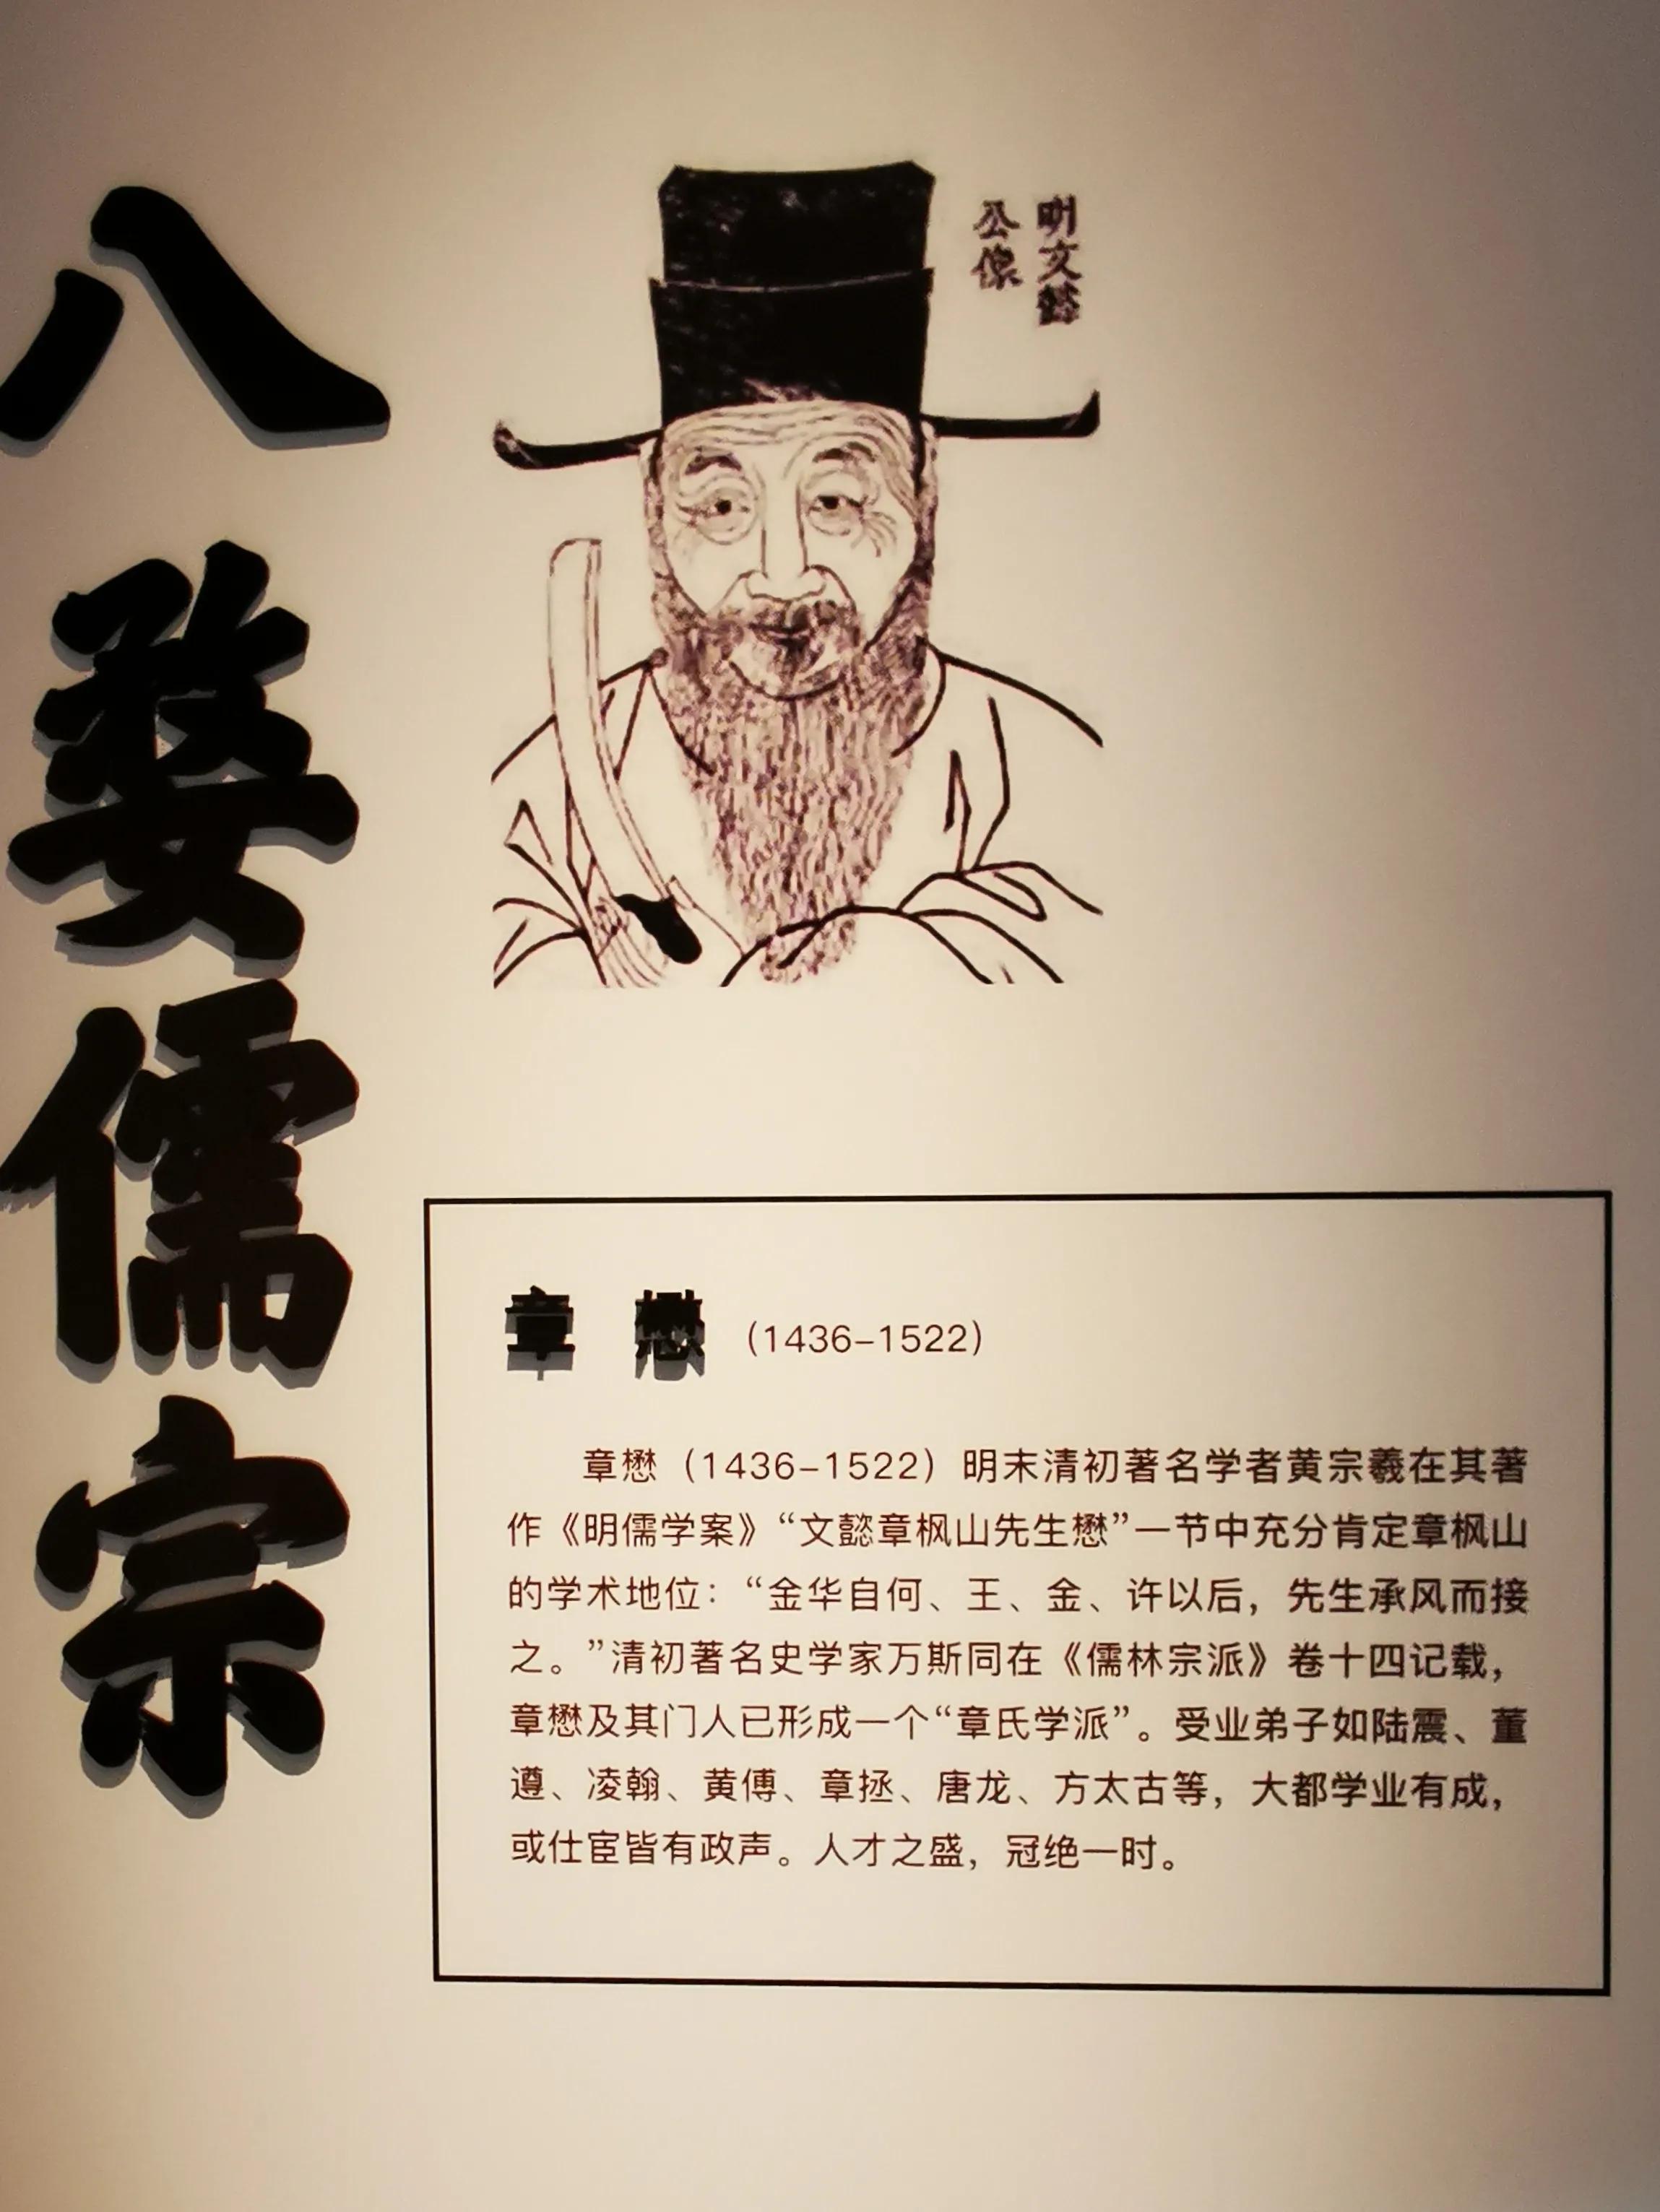 八婺儒宗
明文懿
公像
章 懋 (1436-1522)
章懋（1436-1522）明末清初著名学者黄宗羲在其著
作《明儒学案》“文懿章枫山先生懋”一节中充分肯定章枫山
的学术地位：“金华自何、王、金、许以后，先生承风而接
之。”清初著名史学家万斯同在《儒林宗派》卷十四记载，
章懋及其门人已形成一个“章氏学派”。受业弟子如陆震、董
遵、凌翰、黄傅、章拯、唐龙、方太古等，大都学业有成，
或仕宦皆有政声。人才之盛，冠绝一时。